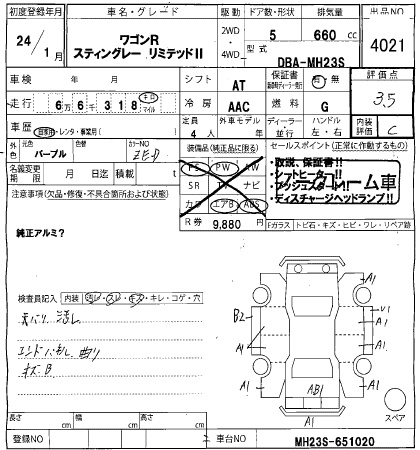 初度登録年月 車名・グレード 駆動 ドア数・形状 排気量 出品NO
24年 1月 ワゴンR スティングレー リミテッドⅡ 2WD・4WD 5 660 cc 4021
型式 DBA-MH23S
車検 年 月 シフト AT 保証書 有・無 評価点 3.5
走行 6万6千318 キロ マイル 冷房 AAC 燃料 G
車歴 自家用・レンタ・事業用( ) 定員 4人 外車モデル 年 ディーラー・並行 ハンドル 左・右 内装評価 C
外色 元色 パープル 色替 カラーNO ZED
装備品(純正品に限る) セールスポイント(正常に作動するもの)
名義変更期限 月 日迄 積載 t
PS PW AW
SR TV ナビ
カワ エアB ABS
R券 9,880 円
・取説、保証書!!
・シフトヒーター!!
・プッシュスタート!!
・ディスチャージヘッドランプ!!
クレーム車
注意事項(欠品・修復・不具合箇所および状態)
純正アルミ?
Fガラス トビ石・キズ・ヒビ・ワレ・リペア跡
検査員記入 内装 汚レ・スレ・キズ・キレ・コゲ・穴
天バリ 汚レ
キズB
A1
B2
A1
A1
A1
U1
A1
A1
A1
AB1
A1
スペア
長さ cm 幅 cm 高さ cm
登録NO 車台NO MH23S-651020